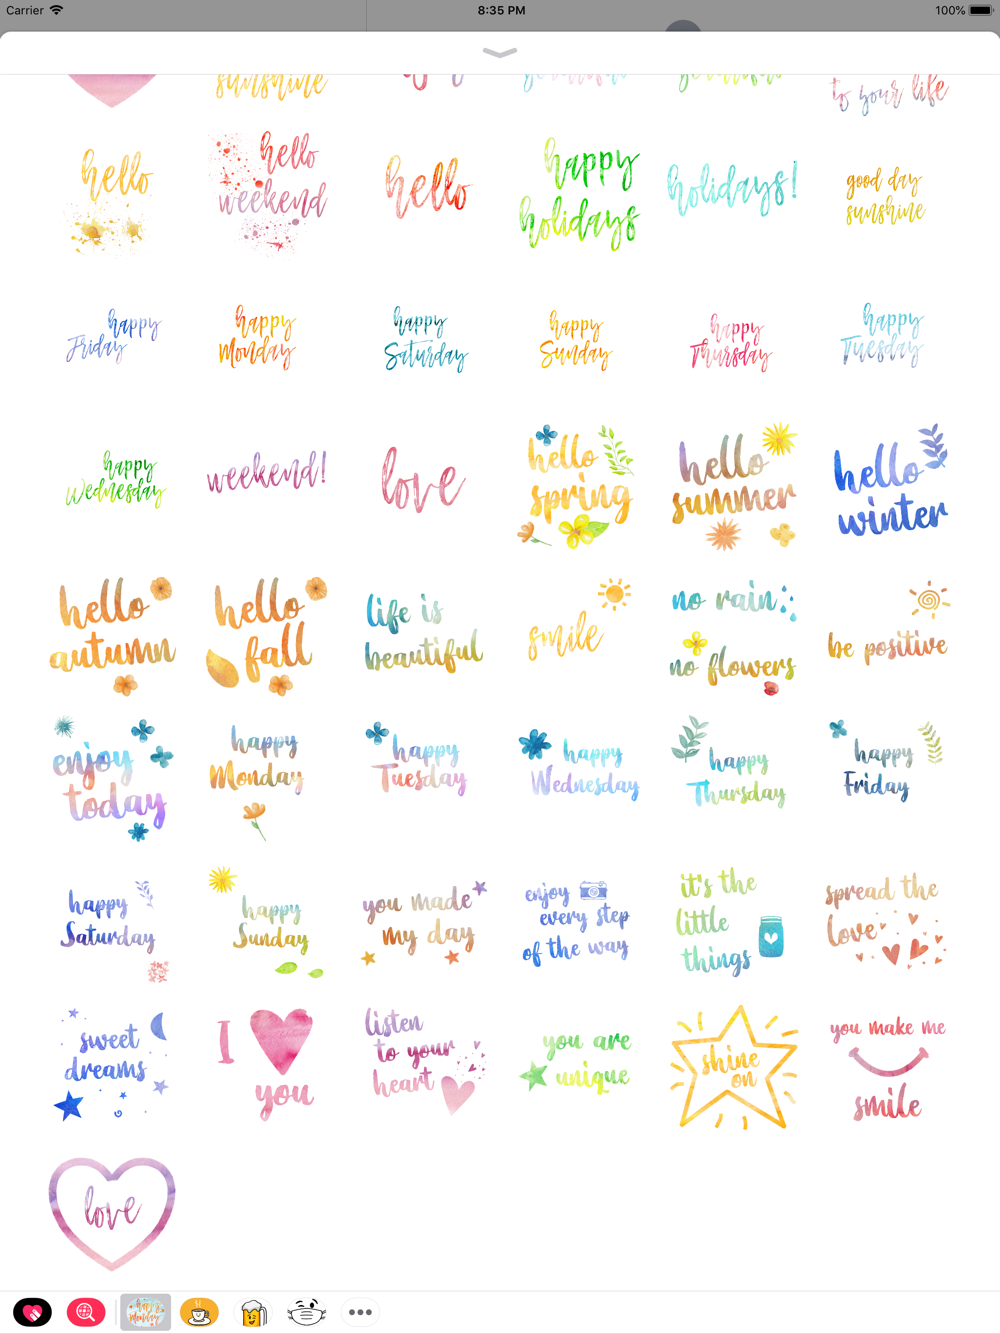 Carrier
8:35 PM
100%
sunshine
to your life
hello
hello
weekend
hello
happy
holidays
holidays!
good day
sunshine
happy
Friday
happy
Monday
happy
Saturday
happy
Sunday
happy
Thursday
happy
Tuesday
happy
Wednesday
weekend!
love
hello
spring
hello
summer
hello
winter
hello
autumn
hello
fall
life is
beautiful
smile
no rain
no flowers
be positive
enjoy
today
happy
Monday
happy
Tuesday
happy
Wednesday
happy
Thursday
happy
Friday
happy
Saturday
happy
Sunday
you made
my day
enjoy
every step
of the way
it's the
little
things
spread the
love
sweet
dreams
I
you
listen
to your
heart
you are
unique
shine
on
you make me
smile
love
happy
monday